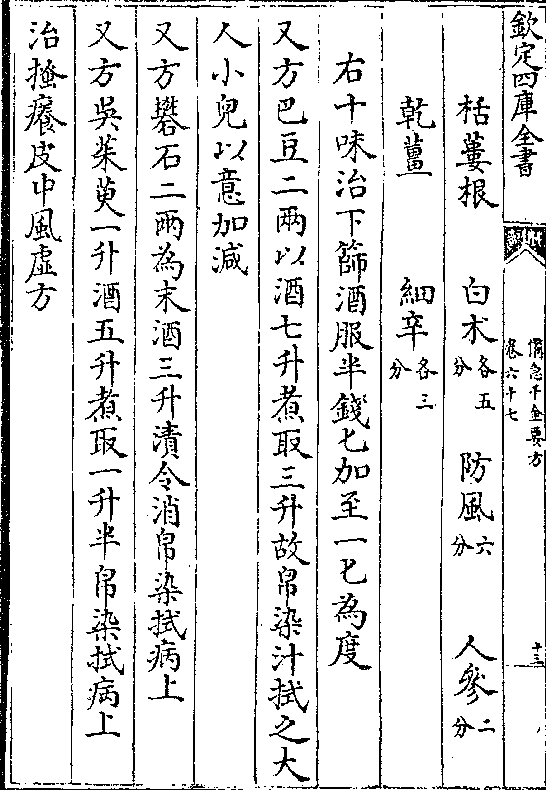 欽定四庫全書
備急千金要方
卷六十七
十三
栝蔞根 白术各五分 防風六分 人參二分
乾薑 細辛各三分
右十味治下篩酒服半錢匕加至一匕為度
又方巴豆二兩以酒七升煮取三升故帛染汁拭之大
人小兒以意加減
又方礬石二兩為末酒三升漬令消帛染拭病上
又方吳茱萸一升酒五升煮取一升半帛染拭病上
治搔癢皮中風虛方